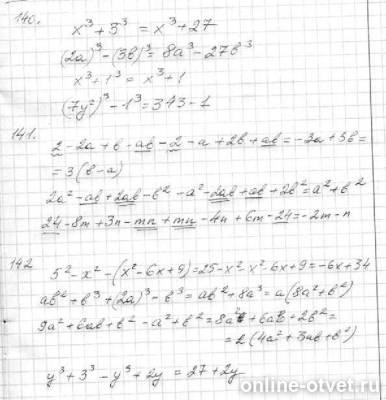 140.
x³ + 3³ = x³ + 27
(2a)³ - (3b)³ = 8a³ - 27b³
x³ + 1³ = x³ + 1
(7y²)³ - 1³ = 343 - 1
141.
2 - 2a + b - ab - 2 - a + 2b + ab = -3a + 3b =
= 3(b - a)
2a² - ab + 2ab - b² - a² - 2ab + ab + 2b² = a² + b²
24 - 8m + 3n - mn + mn - 4n + 6m - 24 = -2m - n
142
5² - x² - (x² - 6x + 9) = 25 - x² - x² - 6x + 9 = -6x + 34
ab² + b³ + (2a)³ - b³ = ab² + 8a³ = a(8a² + b²)
9a² + 6ab + b² - a² + b² = 8a² + 6ab + 2b² =
= 2(4a² + 3ab + b²)
y³ + 3³ - y³ + 2y = 27 + 2y
online-otvet.ru